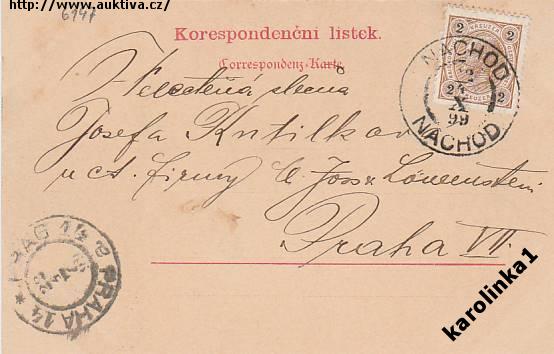 http://www.auktiva.cz/
6147
Korespondenční lístek.
Correspondenz-Karte
2 KREUZER 2
2 2
NÁCHOD
24
X
99
NACHOD
Velectěná slečna
Josefa Kutilkov
u ct. firmy C. Joss & Löwenstein
Praha VII.
PRAG 14 a PRAHA 14
karolinka1